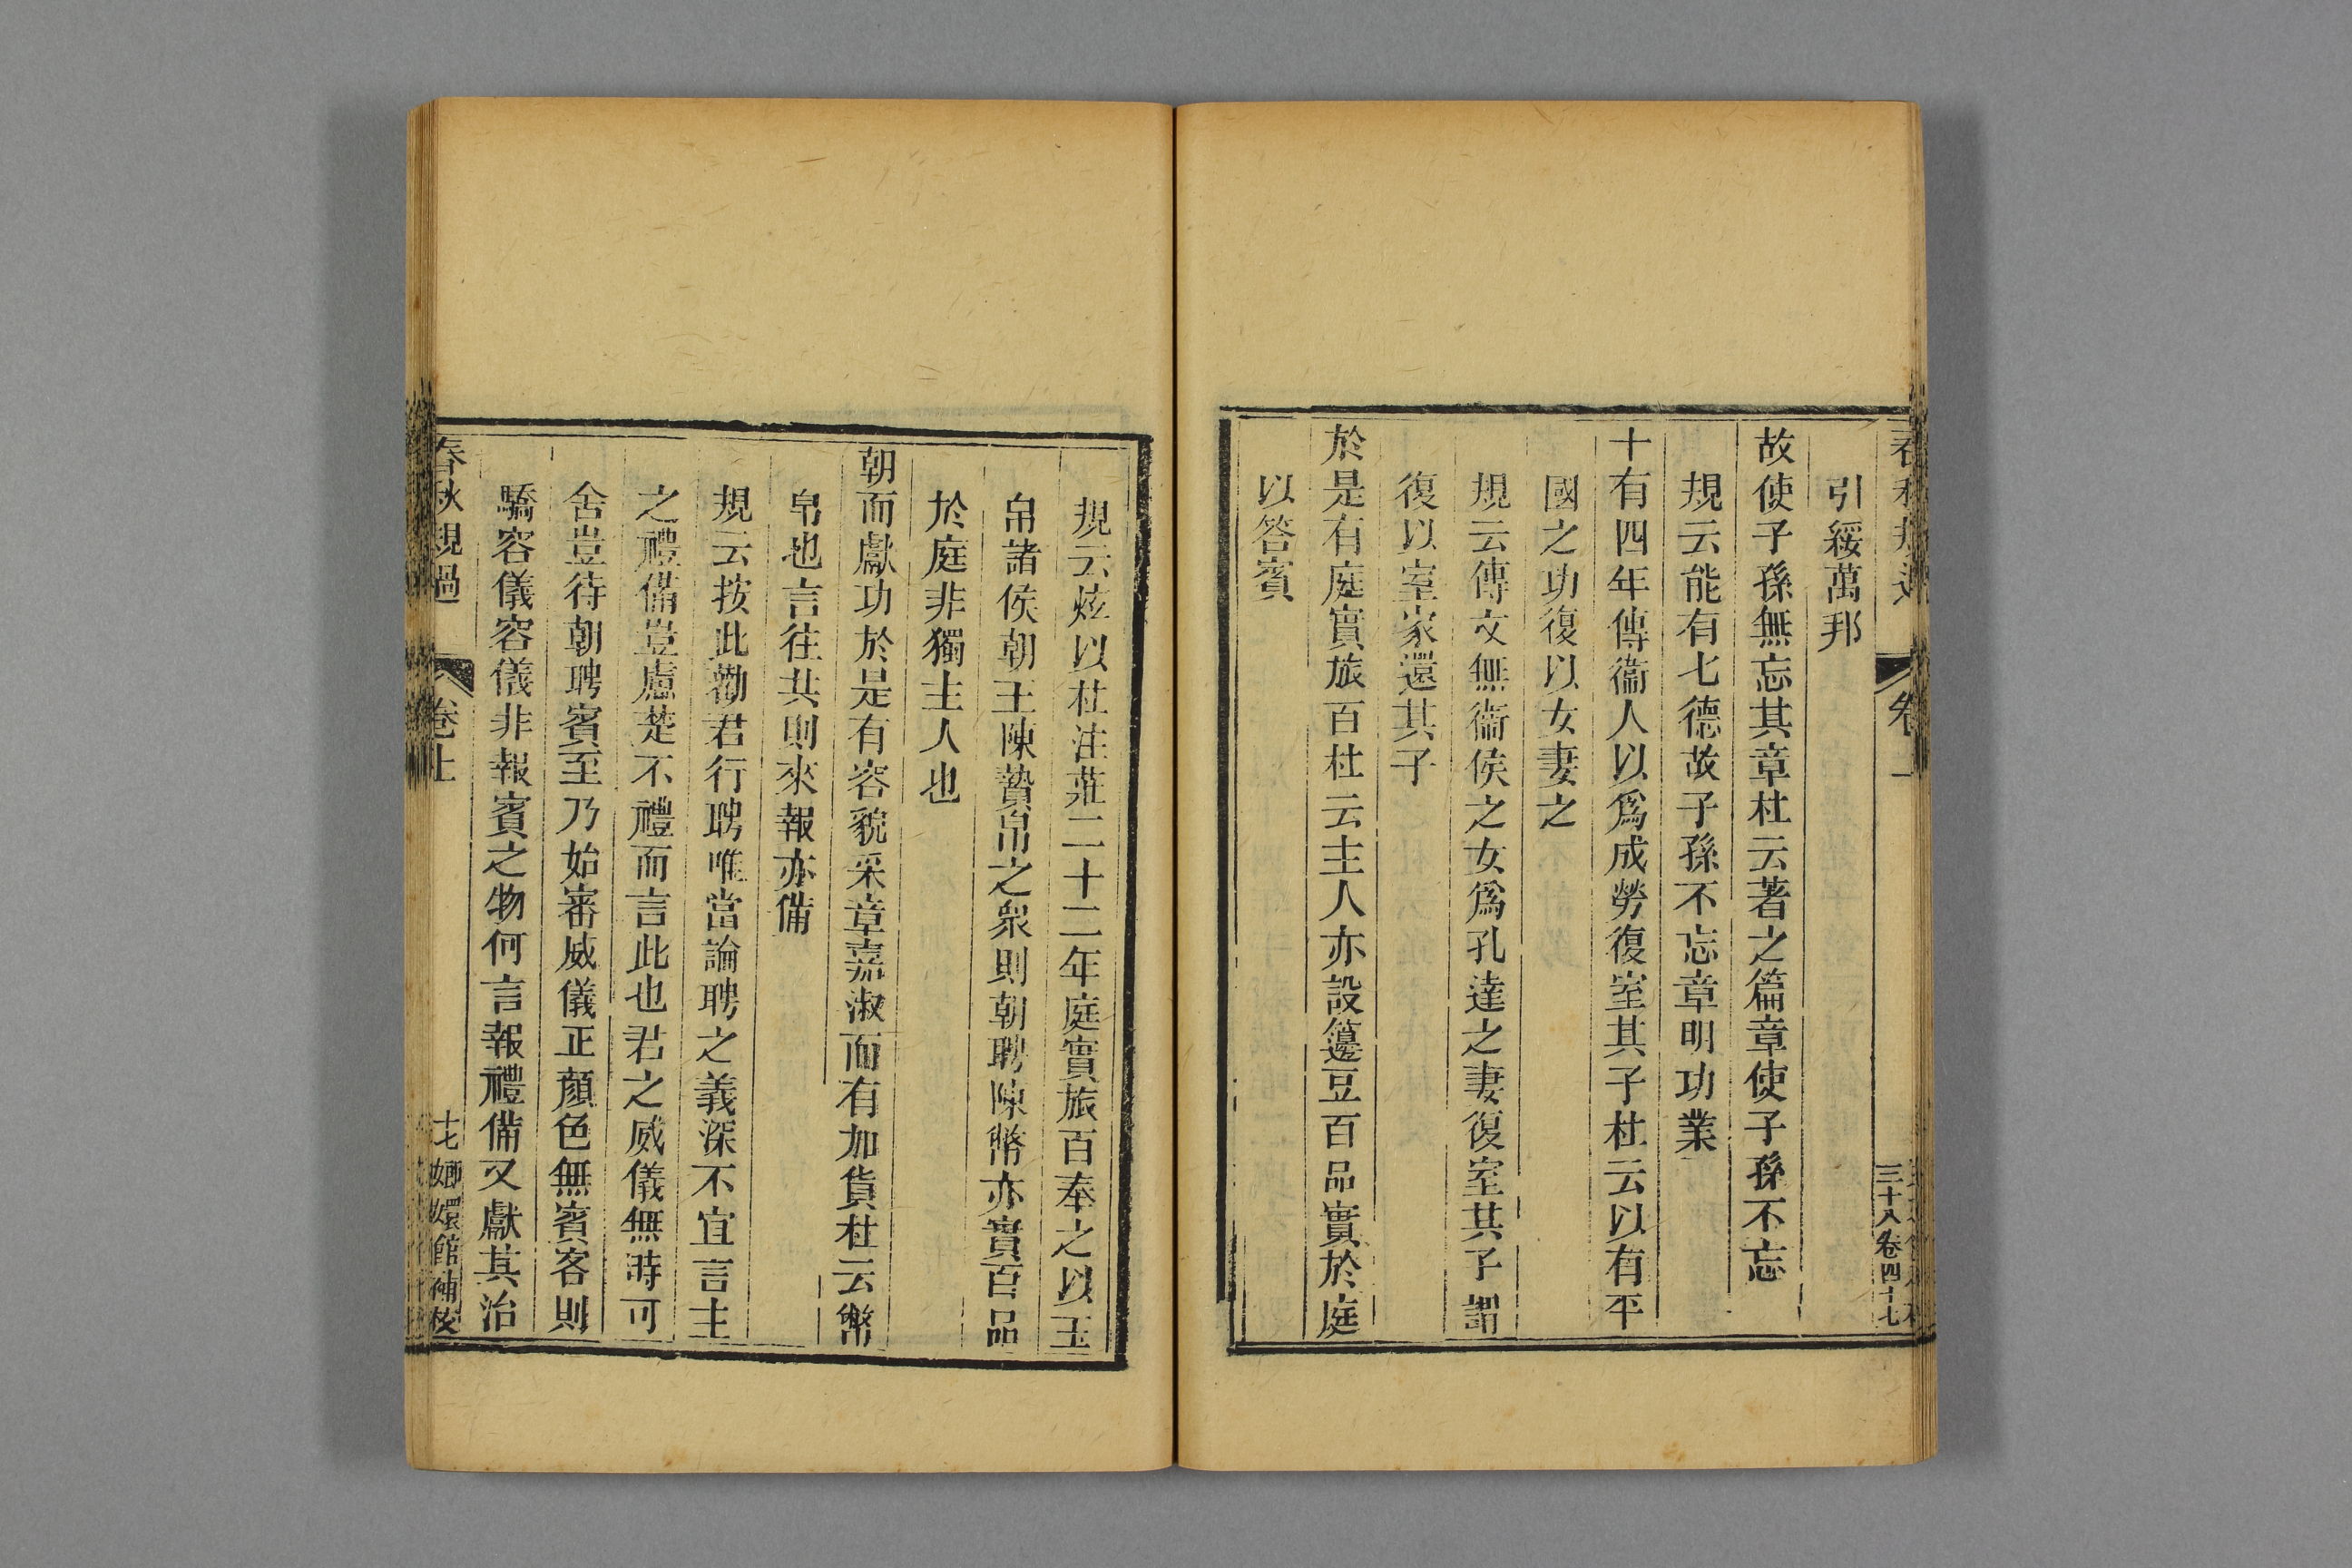 引綏萬邦
故使子孫無忘其章杜云著之篇章使子孫不忘
規云能有七德故子孫不忘章明功業
十有四年傳衞人以爲成勞復室其子杜云以有平
國之功復以女妻之
規云傳文無衞侯之女爲孔達之妻復室其子謂
復以室家還其子
於是有庭實旅百杜云主人亦設籩豆百品實於庭
以答賓
規云炫以杜注莊二十二年庭實旅百奉之以玉
帛諸侯朝王陳贄帛之衆則朝聘陳幣亦實百品
於庭非獨主人也
朝而獻功於是有容貌采章嘉淑而有加貨杜云幣
帛也言往共則來報亦備
規云按此勸君行聘唯當論聘之義深不宜言主
之禮備豈慮楚不禮而言此也君之威儀無時可
舍豈待朝聘賓至乃始審威儀正顏色無賓客則
驕容儀容儀非報賓之物何言報禮備又獻其治
春秋規過 卷上 十七 嫏嬛館補校
三十八卷四十七